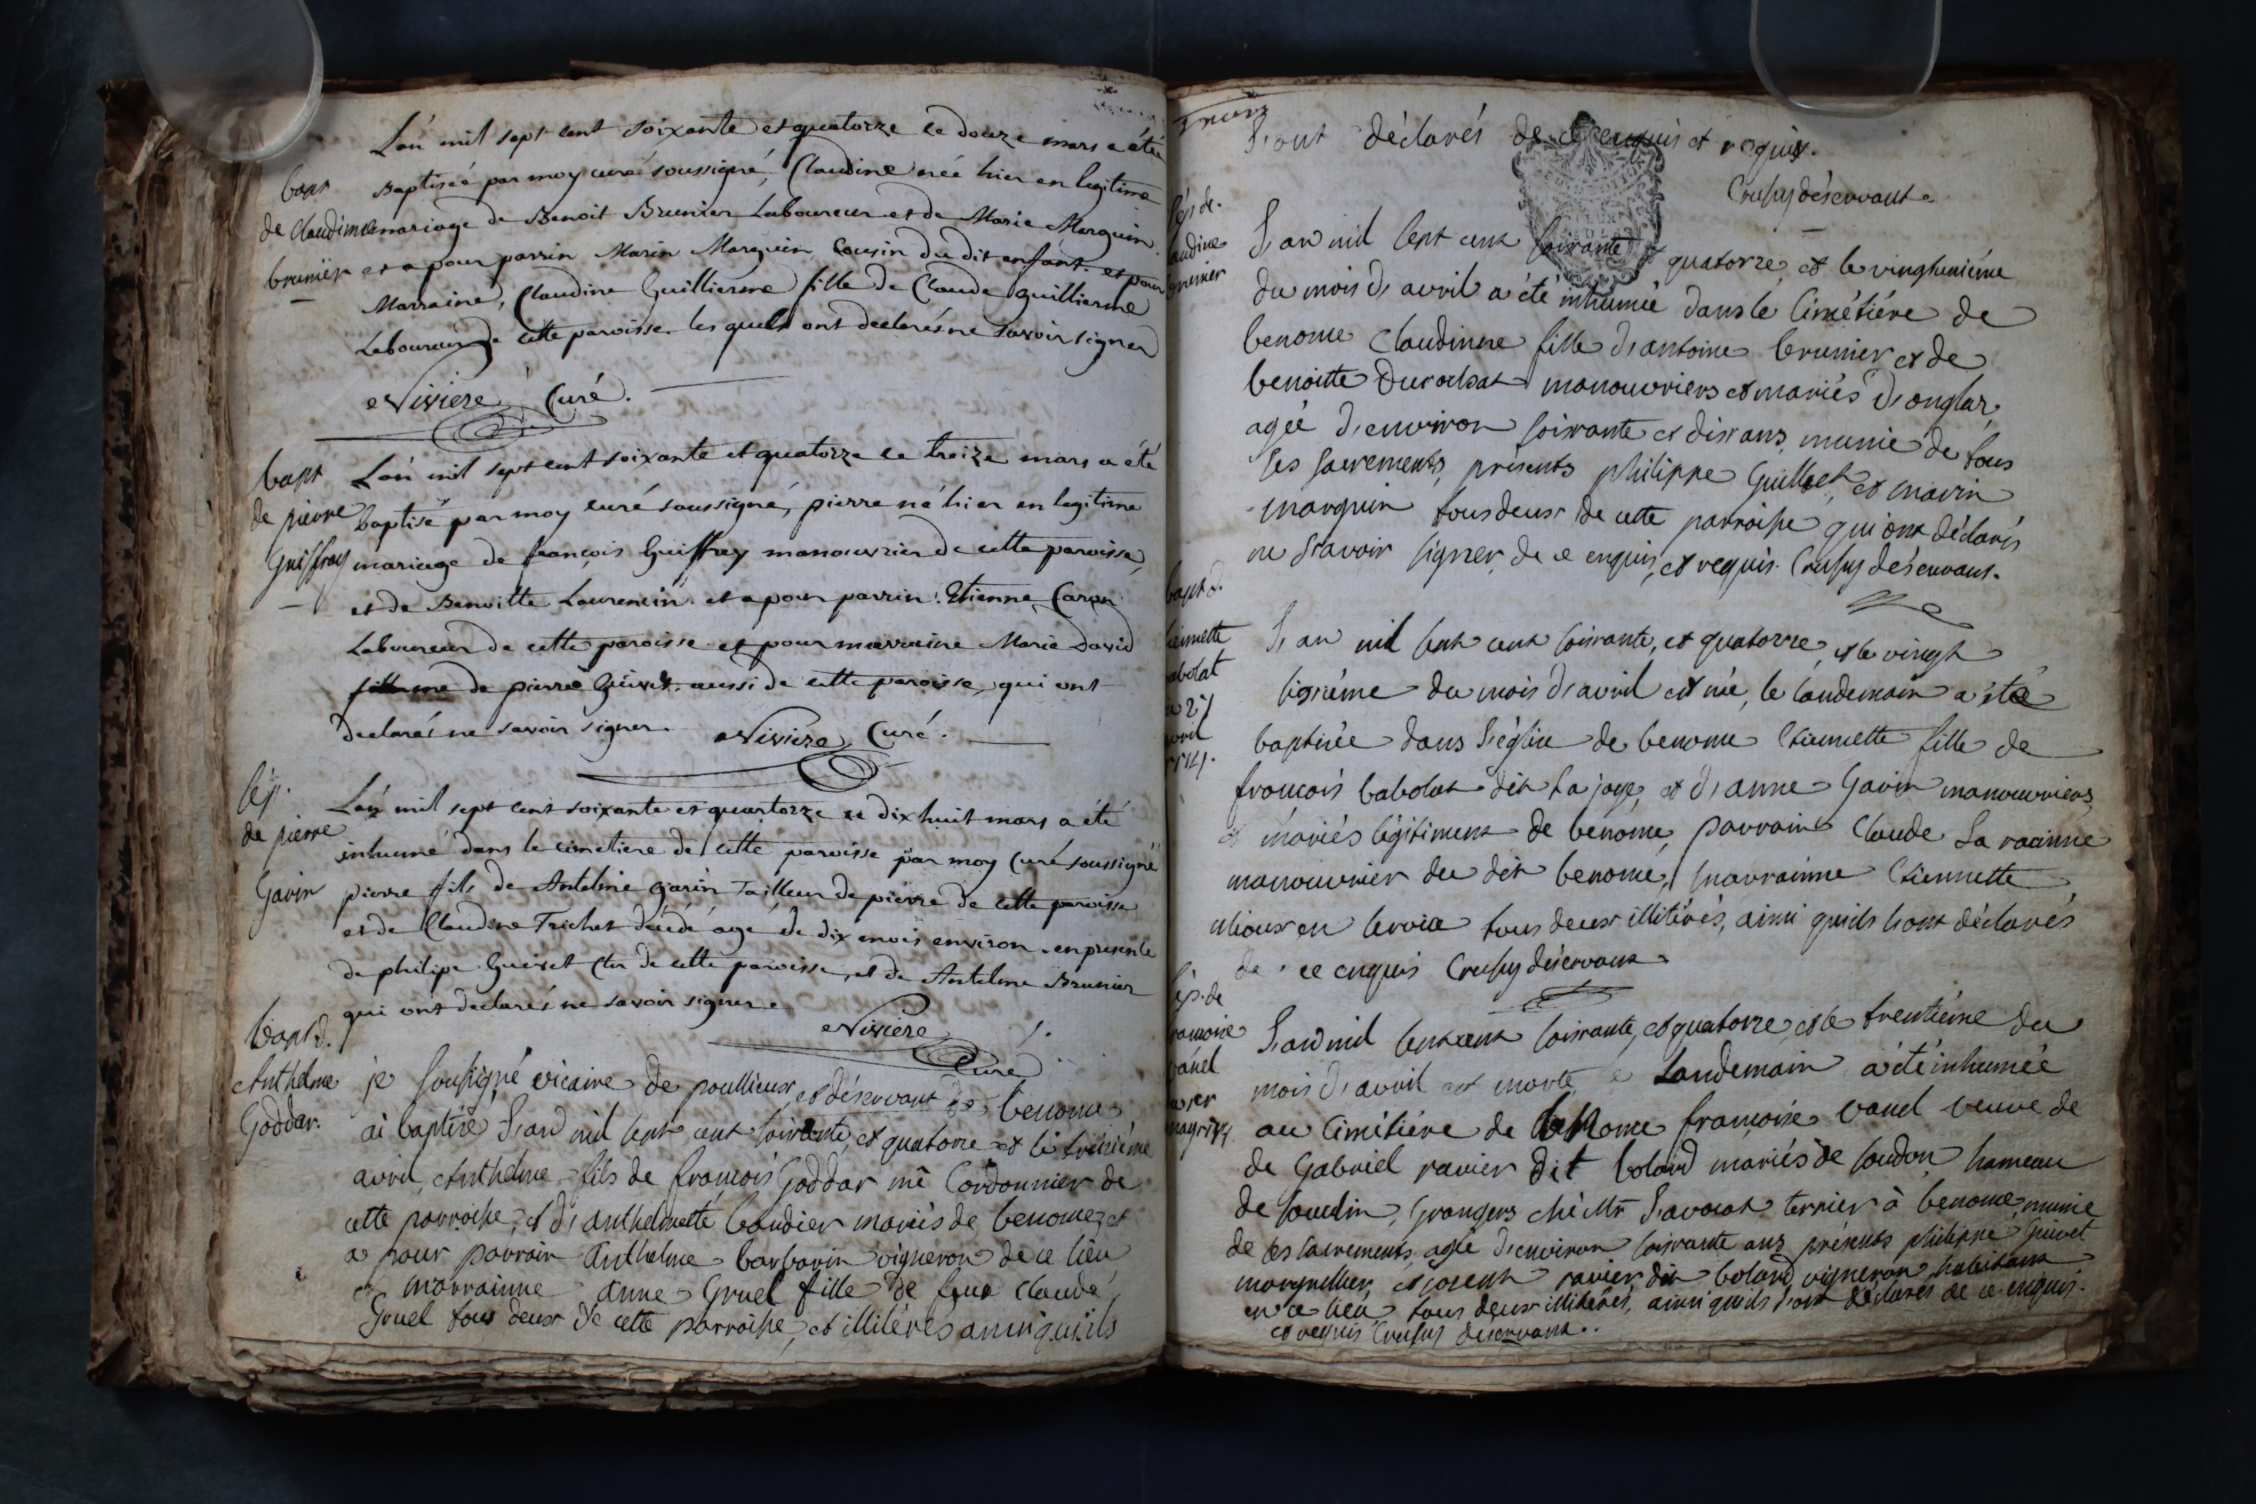 L'an mil sept cent soixante et quatorze le douze mars a été
bapt
baptisée par moy curé soussigné, Claudine née hier en legitime
de Claudine
mariage de Benoit Brunier Laboureur et de Marie Marguin
brunier
et a pour parrin Marin Marguin Cousin du dit enfant. et pour
Marraine, Claudine Guillierme fille de Claude guillierme
Laboureur de cette paroisse. les quels ont declarés ne savoir signer
Nivière Curé.
bapt
L'an mil sept cent soixante et quatorze le treize mars a été
de pierre
baptisé par moy curé soussigné, pierre né hier en legitime
Guiffray
mariage de françois Guiffray manouvrier de cette paroisse,
et de Benoitte Laurencin. et a pour parrin. Etienne Caron
Laboureur de cette paroisse et pour marraine Marie David
de pierre Guivet. aussi de cette paroisse, qui ont
declarés ne savoir signer. Nivière Curé.
sép.
L'an mil sept cent soixante et quartorze le dix huit mars a été
de pierre
inhumé dans le cimetiere de cette paroisse par moy Curé soussigné
Gavin
pierre fils de Antelme Garin Tailleur de pierre de cette paroisse
et de Claudine Trichet décédé agé de dix mois environ. en presence
de philipe Guivet Cler de cette paroisse, et de Antelme Brunier
qui ont declarés ne savoir signer.
Nivière
Curé
bapt d.
Anthelme
je soussigné vicaire de poullieux, et déservant de benome
Goddar.
ai baptisé l'an mil sept cent soixante, et quatorze et le troisième
avril, Anthelme fils de françois Goddar mê Cordonnier de
cette parroisse, et d'anthelmette boudier mariés de benome, et
a pour parrain anthelme barbarin vigneron de ce lieu
et marrainne anne Gruel fille de feue Claude
Gruel tous deux de cette parroisse, et illiterés ainsi qu'ils
l'ont déclarés de ce enquis et requis.
Crussy déservant
sép de
L'an mil sept cent soixante quatorze et le vingtunième
audine
brunier
du mois d'avril a été inhumée dans le Cimétiére de
benome Claudinne fille d'antoine brunier et de
benoitte Durochat manouvriers et mariés d'onglas
agée d'environ soixante et dix ans munie de tous
ses sacrements, présents philippe Guillet, et marin
marguin tous deux de cette parroisse qui ont déclarés
ne sçavoir signer, de ce enquis, et requis. Crussy déservant.
bapt d.
tiennette
L'an mil sept cent soixante, et quatorze et le vingt
abolat
sixième du mois d'avril est née, le landemain a été
27
avril
baptisée dans l'église de benome Etiennette fille de
françois babolat dit la joye, et d'anne Gavin manouvriers,
et mariés légitiment de benome, parrain Claude La racinne
manouvrier du dit benome, marrainne Etiennette
tous deux illitérés, ainsi qu'ils l'ont déclarés
de ce enquis Crussy déservant
sép. de
L'an mil sept cent soixante, et quatorze, et le trentiéme du
vanel
mois d'avril est morte, le Landemain a été inhumée
au Cimétiére de benome françoise vanel veuve de
de Gabriel ravier dit bolard mariés de soudon hameau
Grangers ché Mr L'avocat terrier à benome munie
de ses sacrements, agée d'environ soixante ans, présents philippe Guivet
marguillier, ravier dit bolard vigneron habitant
en ce lieu tous deux illiterés, ainsi qu'ils l'ont déclarés de ce enquis
et requis Crussy déservant.